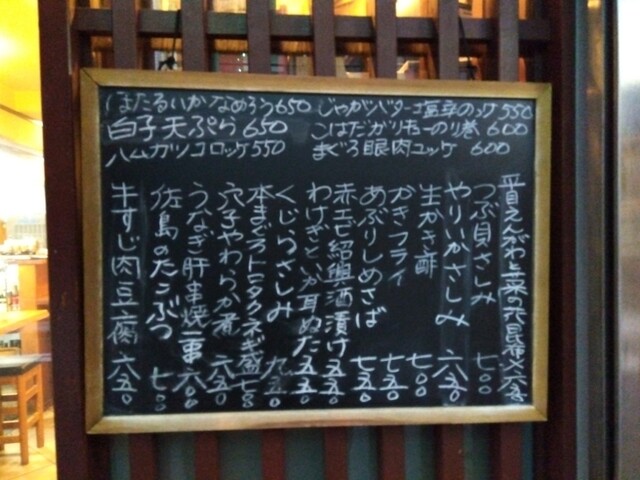 ほたるいかなめろう650
白子天ぷら650
ハムカツコロッケ550
じゃがバター塩辛のっけ550
こはだガリキューのり巻600
まぐろ眼肉ユッケ600
平目えんがわと菜の花昆布〆六五〇
つぶ貝さしみ七〇〇
やりいかさしみ六五〇
生かき酢七〇〇
かきフライ七五〇
あぶりしめさば七五〇
赤エビ紹興酒漬け五五〇
わけぎといか耳ぬた五五〇
くじらさしみ九五〇
本まぐろトロタクネギ盛七〇〇
穴子やわらか煮六五〇
うなぎ肝串焼二串六〇〇
佐島のたこぶつ七〇〇
牛すじ肉豆腐六五〇